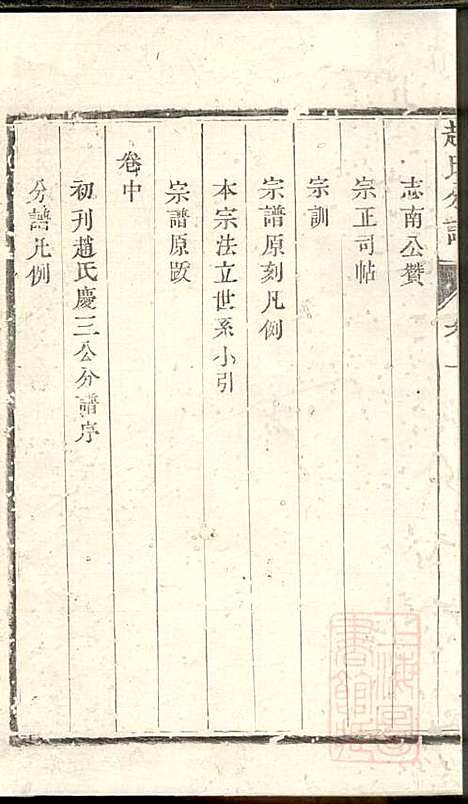 趙氏分譜
志南公贊
宗正司帖
宗訓
宗譜原刻凡例
本宗法立世系小引
宗譜原跋
卷中
初刊趙氏慶三公分譜序
分譜凡例